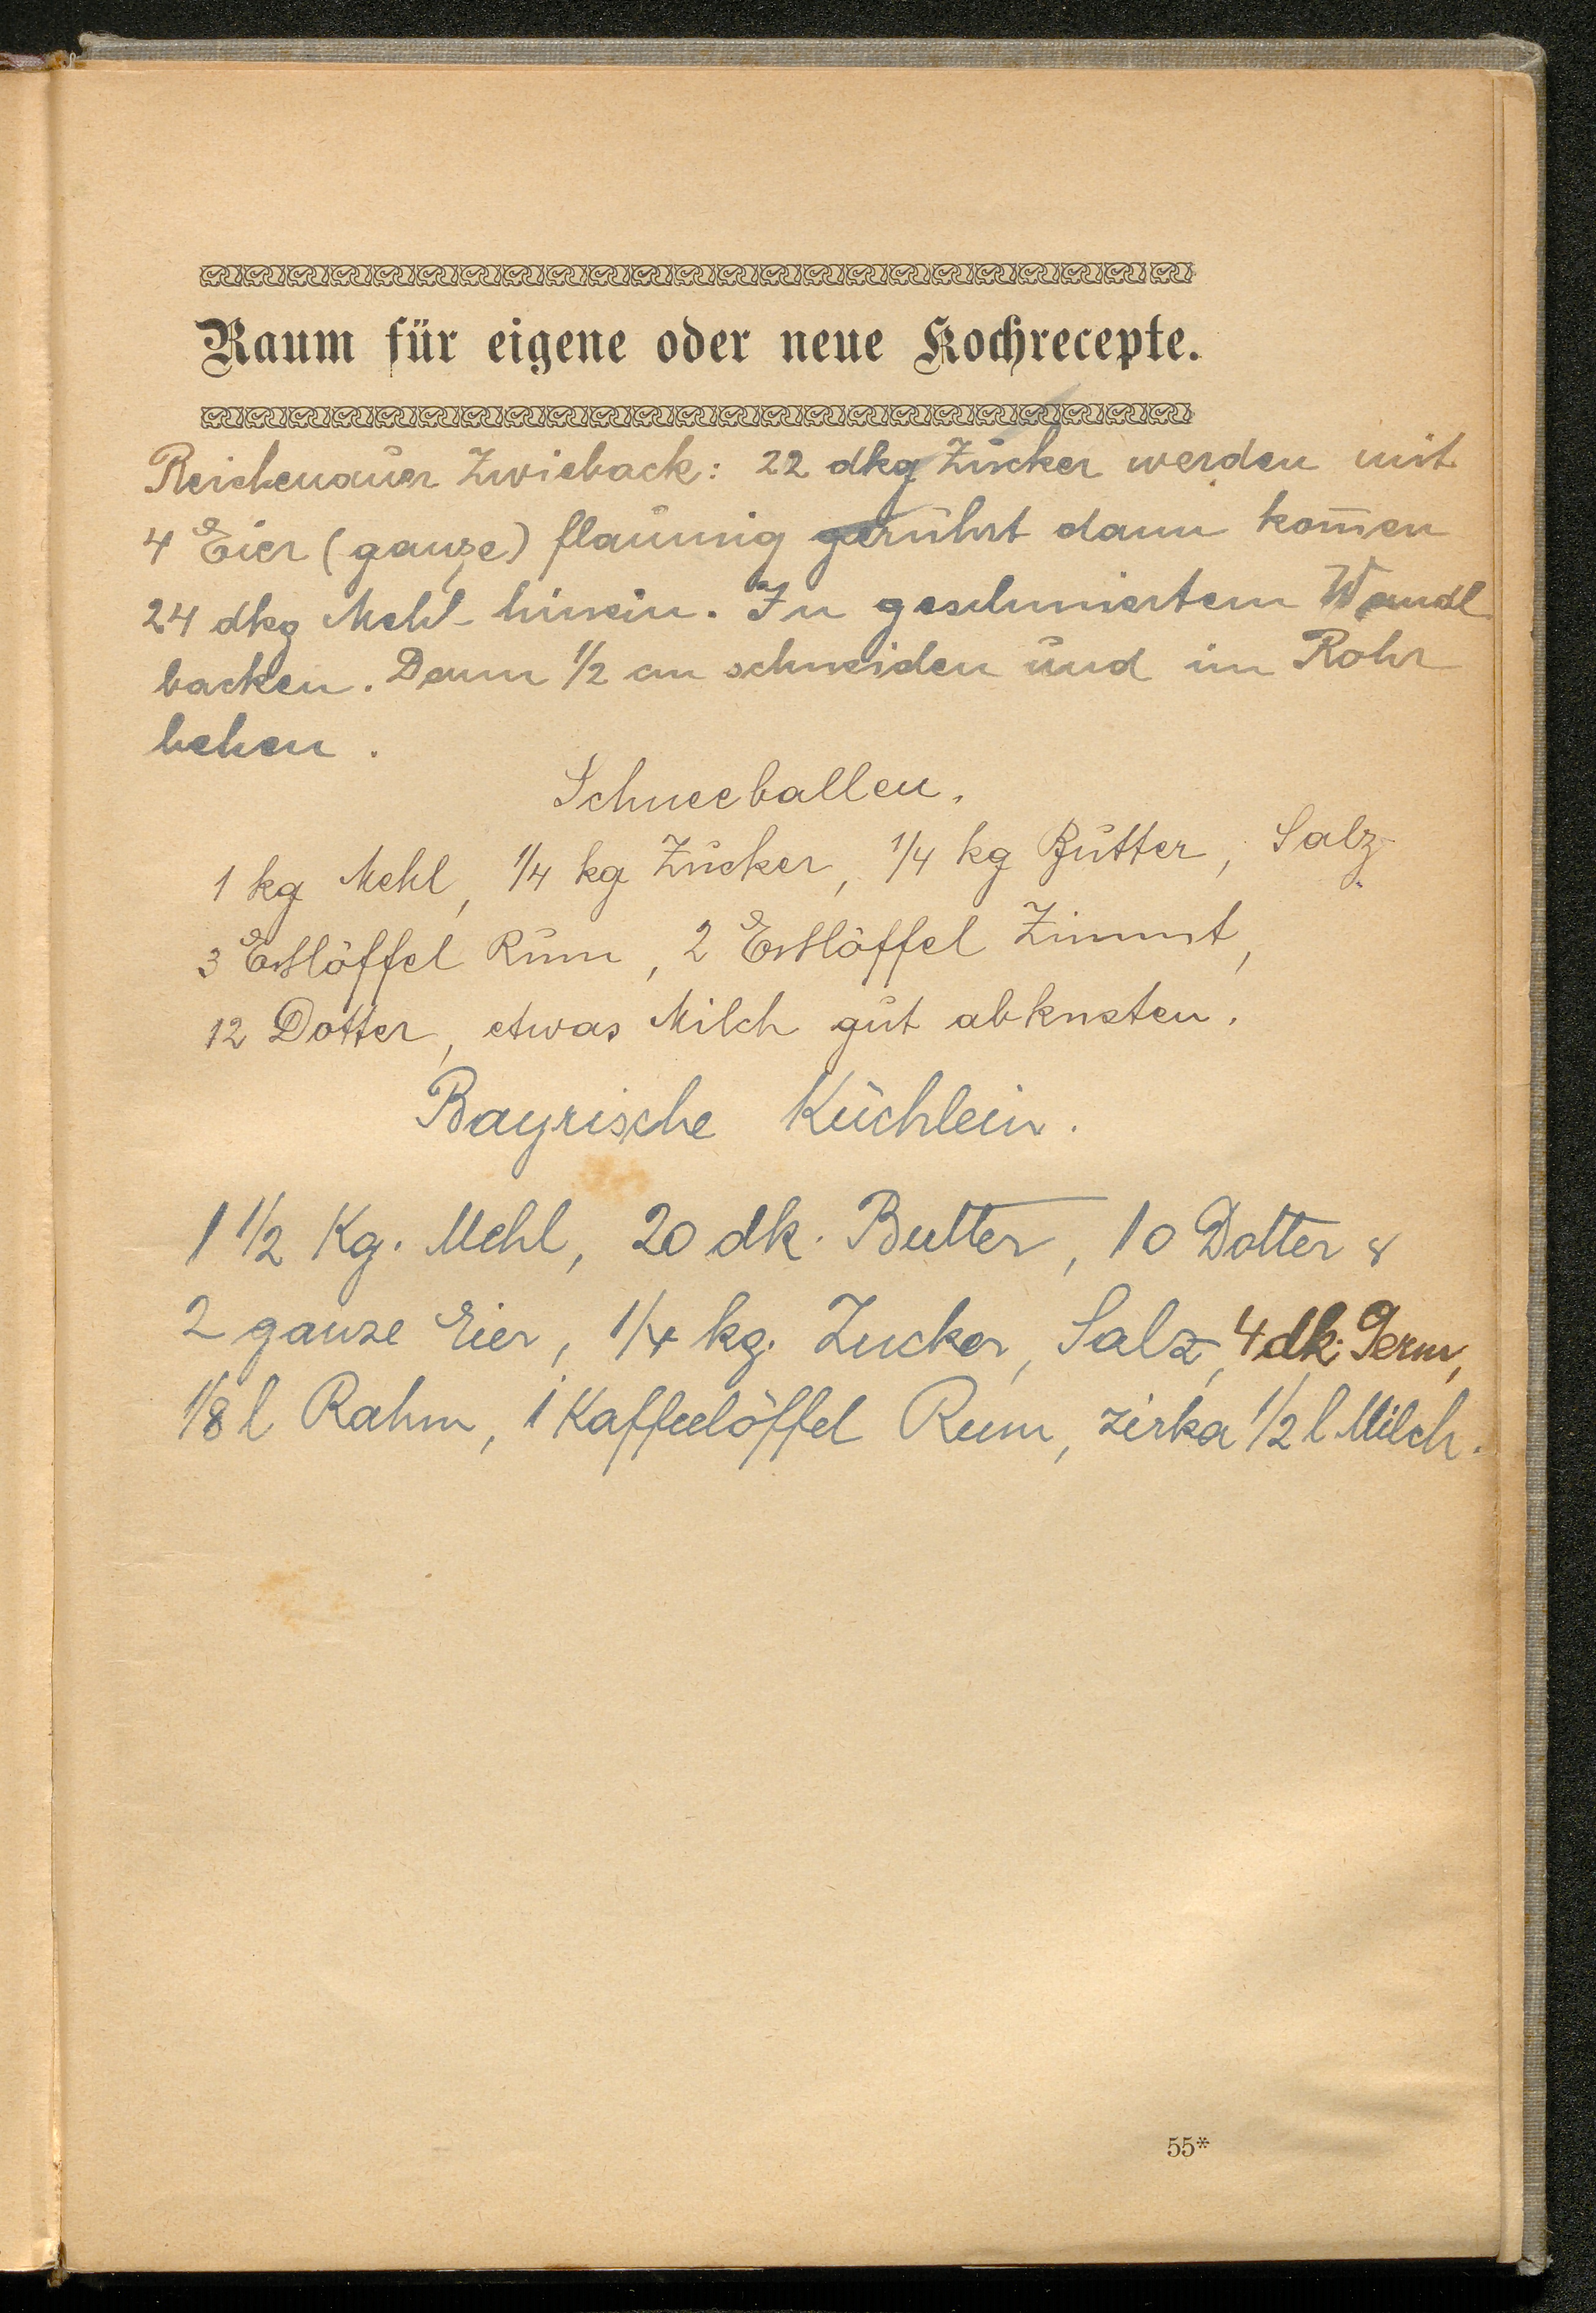 Raum für eigene oder neue Kochrecepte.
Reichenauer Zwieback: 22 dkg Zucker werden mit
4 Eier (ganze) flaumig gerührt dann kom̅en
24 dkg Mehl hinein. In geschmiertem Wandl
backen. Dann 1/2 cm schneiden und im Rohr
behen.
Schneeballen.
1 kg Mehl, 1/4 kg Zucker, 1/4 kg Butter, Salz
3 Esslöffel Rum, 2 Esslöffel Zimmt,
12 Dotter, etwas Milch gut abkneten.
Bayrische Küchlein.
1 1/2 Kg. Mehl, 20 dk. Butter, 10 Dotter &
2 ganze Eier, 1/4 kg. Zucker, Salz, 4 dk. Germ,
1/8 l Rahm, 1 Kaffeelöffel Rum, zirka 1/2 l Milch.
55*